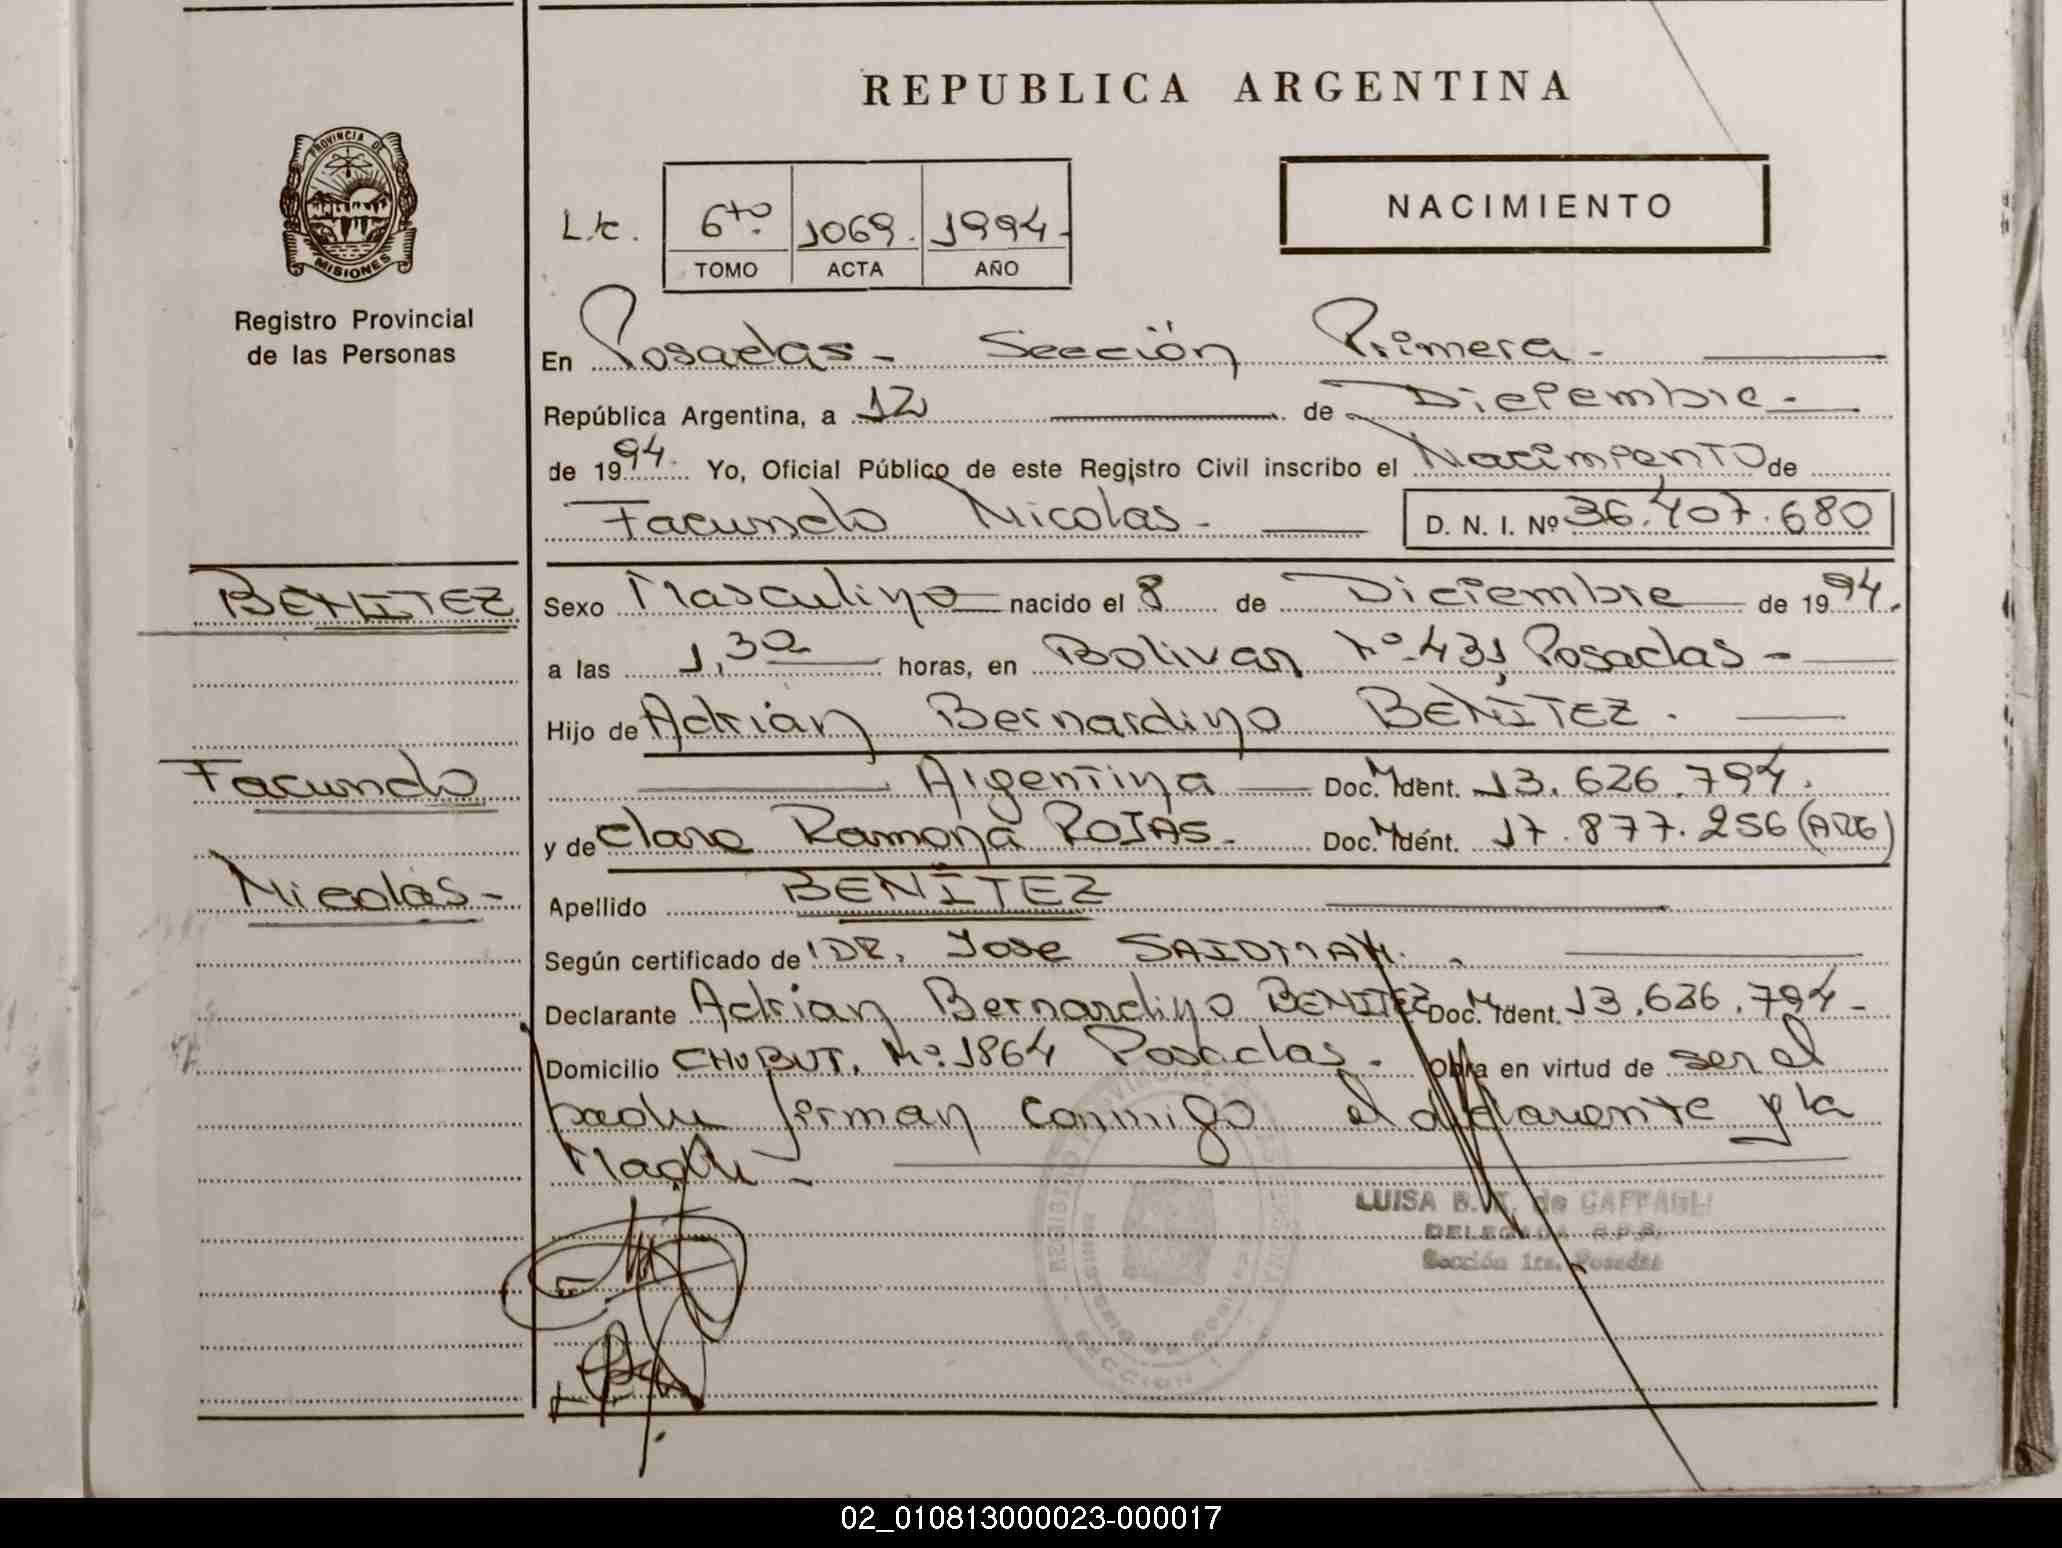 REPUBLICA ARGENTINA
PROVINCIA DE
MISIONES
Registro Provincial
de las Personas
NACIMIENTO
6to. 1069. 1994.
TOMO ACTA AÑO
En Posadas - Sección Primera -
República Argentina, a 12 de Diciembre -
de 1994. Yo, Oficial Público de este Registro Civil inscribo el Nacimiento de
Facundo Nicolas - D. N. I. Nº 36.407.680
BENITEZ
Facundo
Nicolás -
Sexo Masculino nacido el 8 de Diciembre de 1994.
a las 1,30 horas, en Bolivar Nº 431 Posadas -
Hijo de Adrián Bernardino BENÍTEZ.
Argentina Doc. Ident. 13.626.794.
y de Clara Ramona ROJAS - Doc. Ident. 17.877.256 (ARG)
Apellido BENÍTEZ
Según certificado de DR. Jose SAIDMAN.
Declarante Adrian Bernardino BENITEZ Doc. Ident. 13.626.794 -
Domicilio CHUBUT. Nº 1864 Posadas - Obra en virtud de ser el
padre firman conmigo el declarante y la
Madre -
LUISA B. de
DELEGADA R.P.P.
Sección 1ra. Posadas
02_010813000023-000017